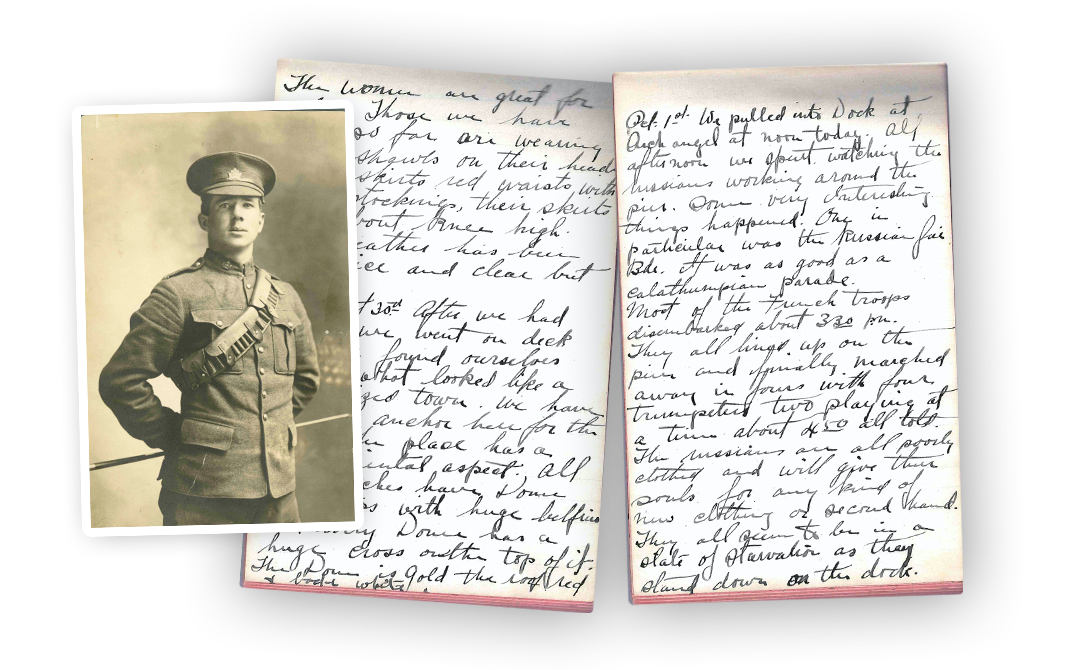 The women are great for
Those we have
so far are wearing
shawls on their heads
skirts red waists with
stockings, their skirts
bout Knee high.
eather has been
ice and clear but
t 30th After we had
we went on deck
found ourselves
what looked like a
zed town. We have
anchor here for the
place has a
iental aspect. All
ches have Dome
rs with huge belfries
Dome has a
huge cross on the top of it.
The Dome is Gold the roof red
& body white
Oct. 1st. We pulled into Dock at
Archangel at noon today. All
afternoon we spent watching the
russians working around the
pier. Some very interesting
things happened. One in
particular was the Russian fire
Bde. It was as good as a
calathumpian parade.
Most of the French troops
disembarked about 330 pm.
They all lined up on the
pier and finally marched
away in fours with four
trumpeters two playing at
a time about 450 all told.
The russians are all poorly
clothed and will give their
souls for any kind of
new clothing or second hand.
They all seem to be in a
state of starvation as they
stand down on the dock.